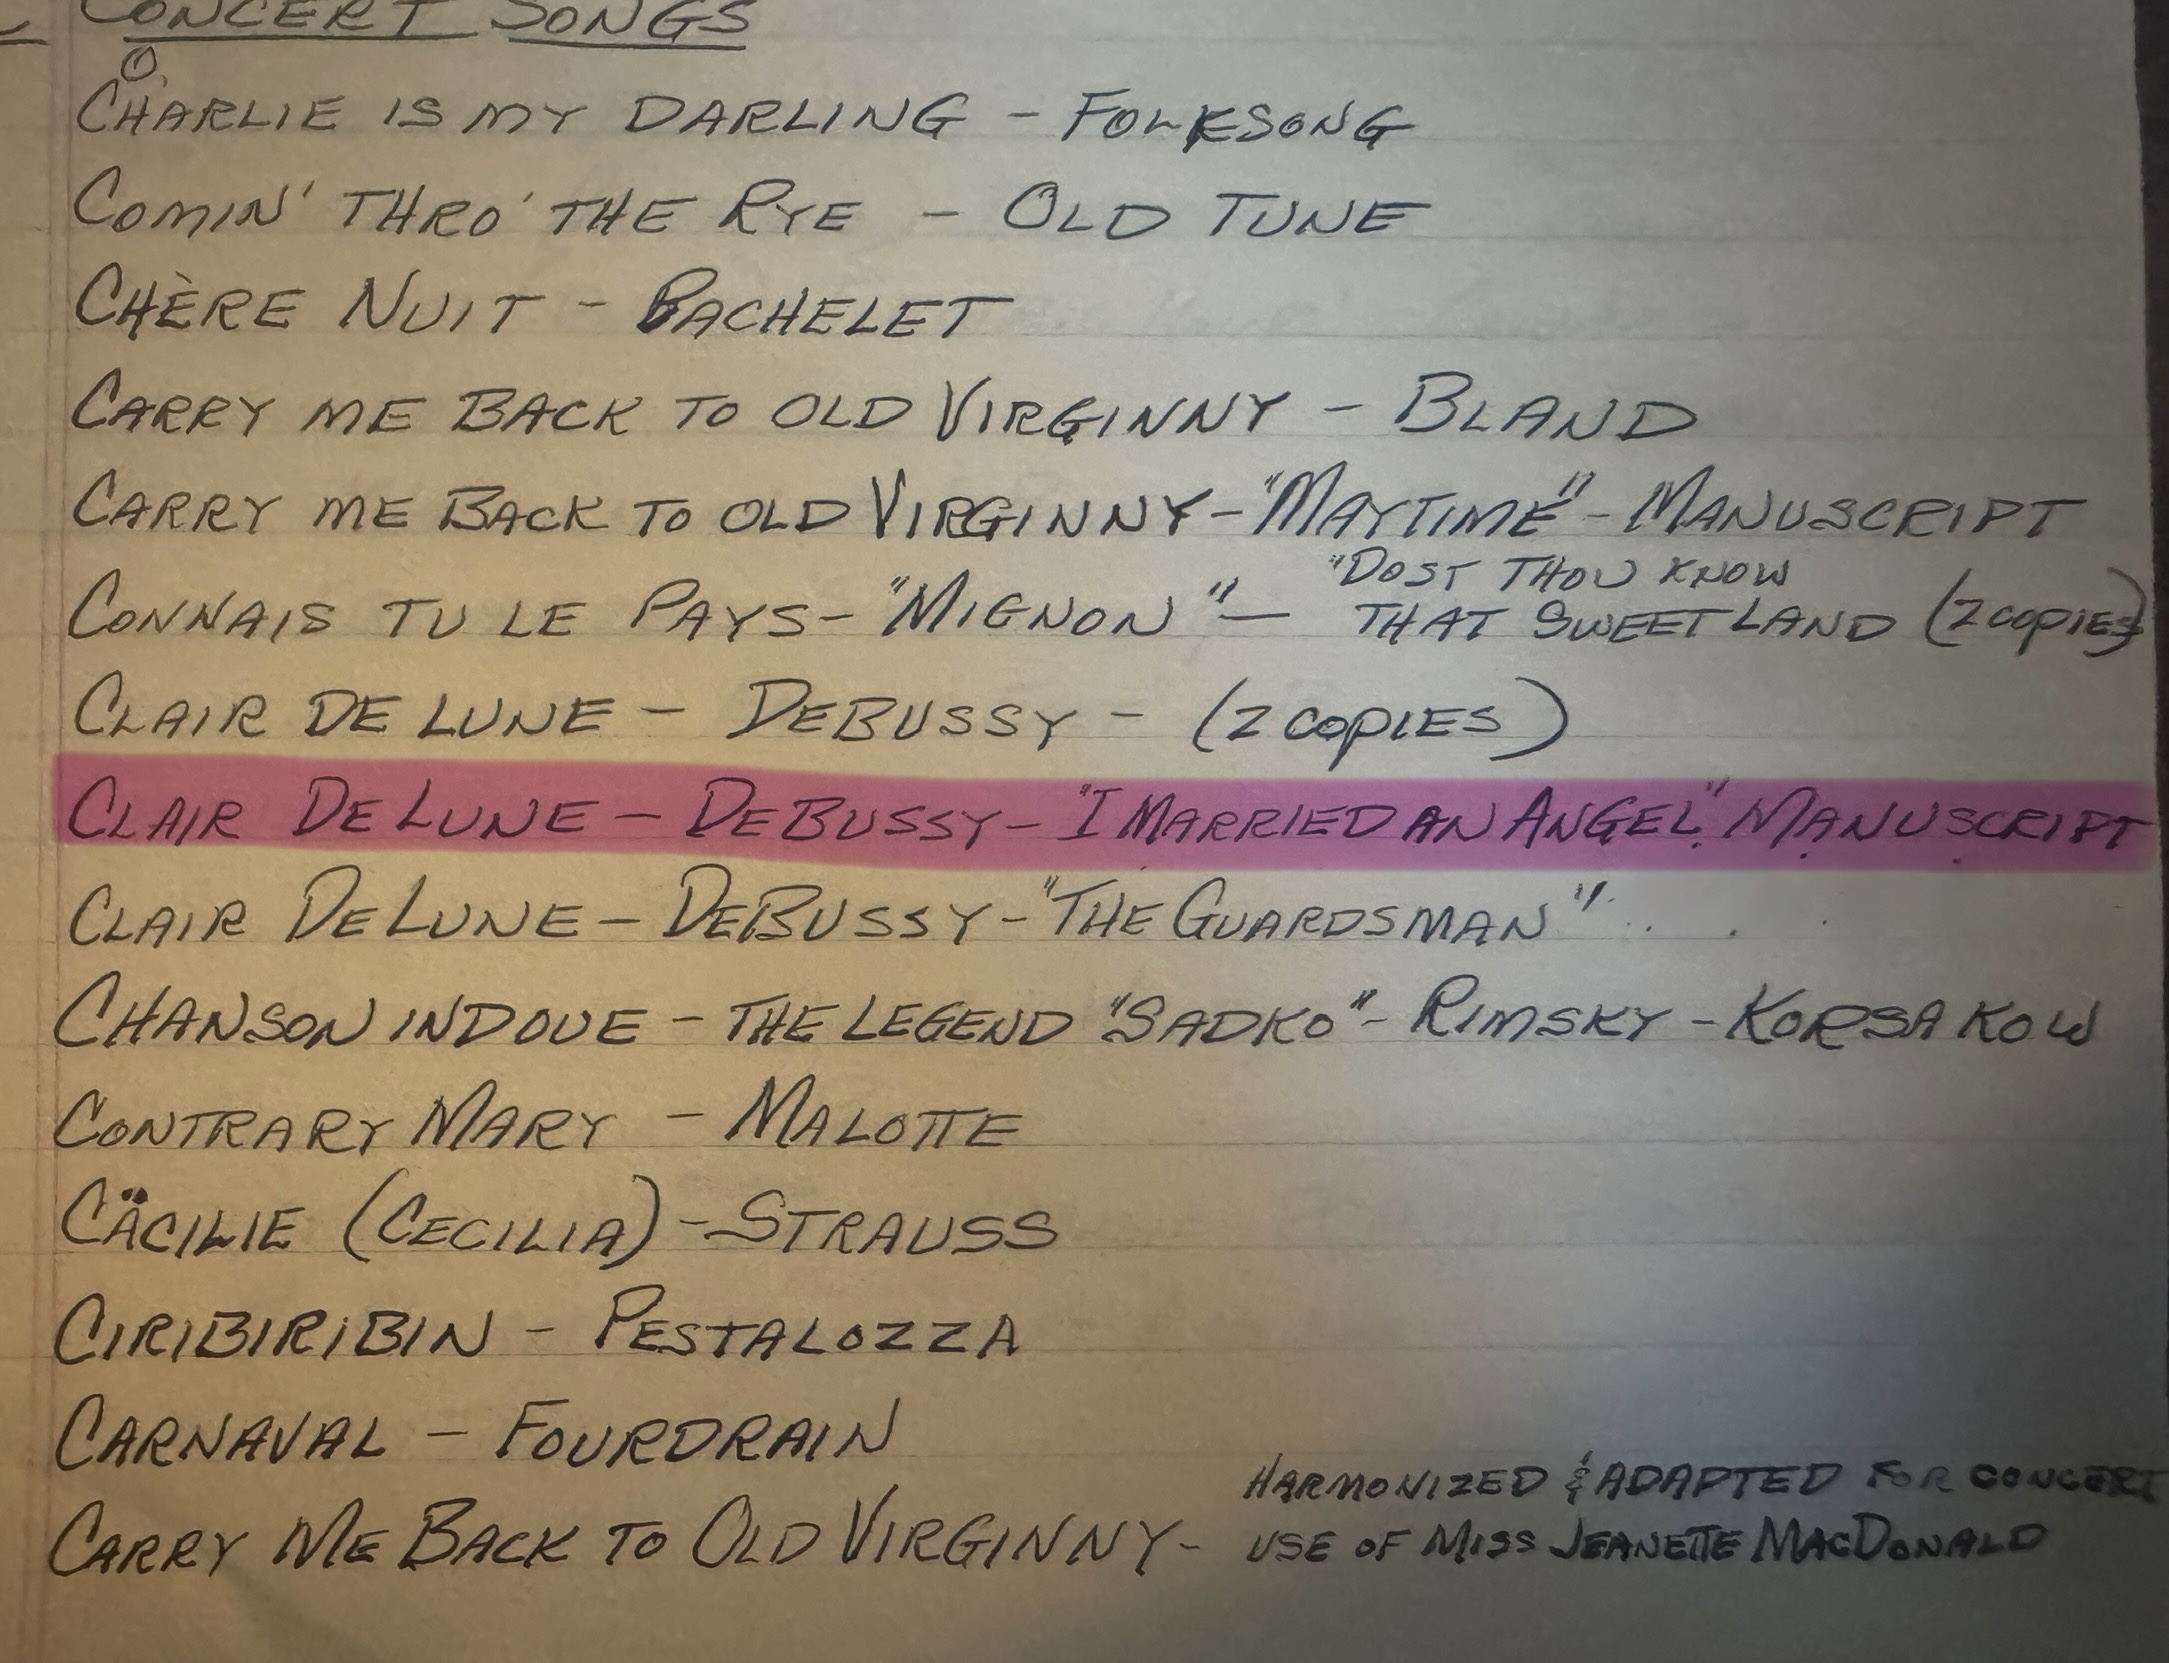 CONCERT SONGS
CHARLIE IS MY DARLING - FOLKSONG
COMIN' THRO' THE RYE - OLD TUNE
CHÈRE NUIT - BACHELET
CARRY ME BACK TO OLD VIRGINNY - BLAND
CARRY ME BACK TO OLD VIRGINNY - "MAYTIME" - MANUSCRIPT
CONNAIS TU LE PAYS - "MIGNON" - "DOST THOU KNOW
THAT SWEET LAND (2 COPIES)
CLAIR DE LUNE - DEBUSSY - (2 COPIES)
CLAIR DE LUNE - DEBUSSY - "I MARRIED AN ANGEL" MANUSCRIPT
CLAIR DE LUNE - DEBUSSY - "THE GUARDSMAN" . . .
CHANSON INDOUE - THE LEGEND "SADKO" - RIMSKY - KORSAKOW
CONTRARY MARY - MALOTTE
CÄCILIE (CECILIA) - STRAUSS
CIRIBIRIBIN - PESTALOZZA
CARNAVAL - FOURDRAIN
CARRY ME BACK TO OLD VIRGINNY - HARMONIZED & ADAPTED FOR CONCERT
USE OF MISS JEANETTE MACDONALD